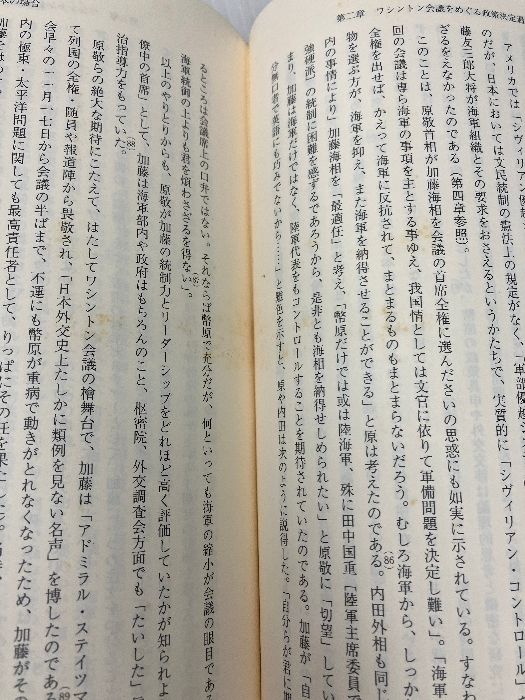 第二章　ワシントン会議をめぐる政策決定過
アメリカでは「シヴィリアン・
のだが、日本においては文民統制の憲法上の規定がなく、「軍部優越シ
藤友三郎大将が海軍組織とその要求をおさえるというかたちで、実質的に「シヴィリアン・コントロール」
ざるをえなかったのである（第四章参照）。
このことは、原敬首相が加藤海相を会議の首席全権に選んださいの思惑にも如実に示されている。すなわ
回の会議は専ら海軍の事項を主とする事ゆえ、我国情としては文官に依りて軍備問題を決定し難い」。「海軍
全権を出せば、かえって海軍に反抗されて、まとまるものもまとまらないだろう。むしろ海軍から、しっか
物を選ぶ方が、海軍を抑え、また海軍を納得させることができる」と原は考えたのである。(86)内田外相も同じ
んな事情により」加藤海相を「最適任」と考え、「幣原だけでは或は陸海軍、殊に田中国重「陸軍主席委員で
強硬派」の統制に困難を感ずるであろうから、是非とも海相を納得せしめられたい」と原敬に「切望」してい
まり、加藤は海軍だけではなく、陸軍代表をもコントロールすることを期待されていたのである。加藤が「自
分無口者で英語にも巧みでないから……」と難色を示すと、原や内田は次のように説得した。「自分らが君に期
るところは会議席上の口弁ではない。それならば幣原で充分だが、何といっても海軍の縮小が会議の眼目であ
海軍統制の上よりも君を煩わさざるを得ない」。(87)
以上のやりとりからも、原敬が加藤の統制力とリーダーシップをどれほど高く評価していたかが知られよ
僚中の首席」として、加藤は海軍部内や政府はもちろんのこと、枢密院、外交調査会方面でも「たいした」
治指導力をもっていた。(88)
原敬らの絶大な期待にこたえて、はたしてワシントン会議の檜舞台で、加藤は「アドミラル・ステイツマ
て列国の全権・随員や報道陣から畏敬され、「日本外交史上たしかに類例を見ない名声」を博したのである
会早々の一一月一七日から会議の半ばまで、不運にも幣原が重病で動きがとれなくなったため、加藤がその
内の極東・太平洋問題に関しても最高責任者として、りっぱにその任を果たした。